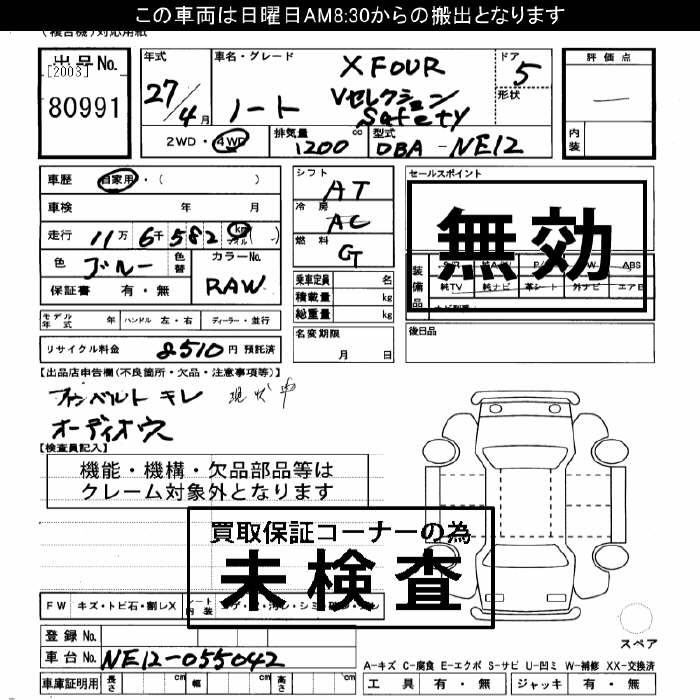 この車両は日曜日AM8:30からの搬出となります
(複合機)対応用紙
出品No.
[2003]
80991
年式
27
4月
車名・グレード
X FOUR
ノート Vセレクション
Safety
ドア
5
形状
評価点
内装
2WD・4WD
排気量
1200 cc
型式
DBA-NE12
車歴 自家用・( )
車検 年 月
走行 11万6千582 km マイル ( )
色 ブルー
色替
カラーNo.
RAW
保証書 有・無
シフト
AT
冷房
AC
燃料
G
乗車定員 名
積載量 kg
総重量 kg
名変期限
月 日
セールスポイント
無効
装備品
ABS
純TV 純ナビ 革シート 外ナビ エアB
後日品
モデル年式 年 ハンドル 左・右 ディーラー・並行
リサイクル料金 8510円 預託済
【出品店申告欄(不良箇所・欠品・注意事項等)】
ファンベルト キレ 現状車
オーディオ欠
【検査員記入】
機能・機構・欠品部品等は
クレーム対象外となります
買取保証コーナーの為
未検査
FW キズ・トビ石・割レX シート内装
登録No.
車台No. NE12-055042
車庫証明用 長さ cm 幅 cm 高さ cm
スペア
A-キズ C-腐食 E-エクボ S-サビ U-凹ミ W-補修 XX-交換済
工具 有・無 ジャッキ 有・無